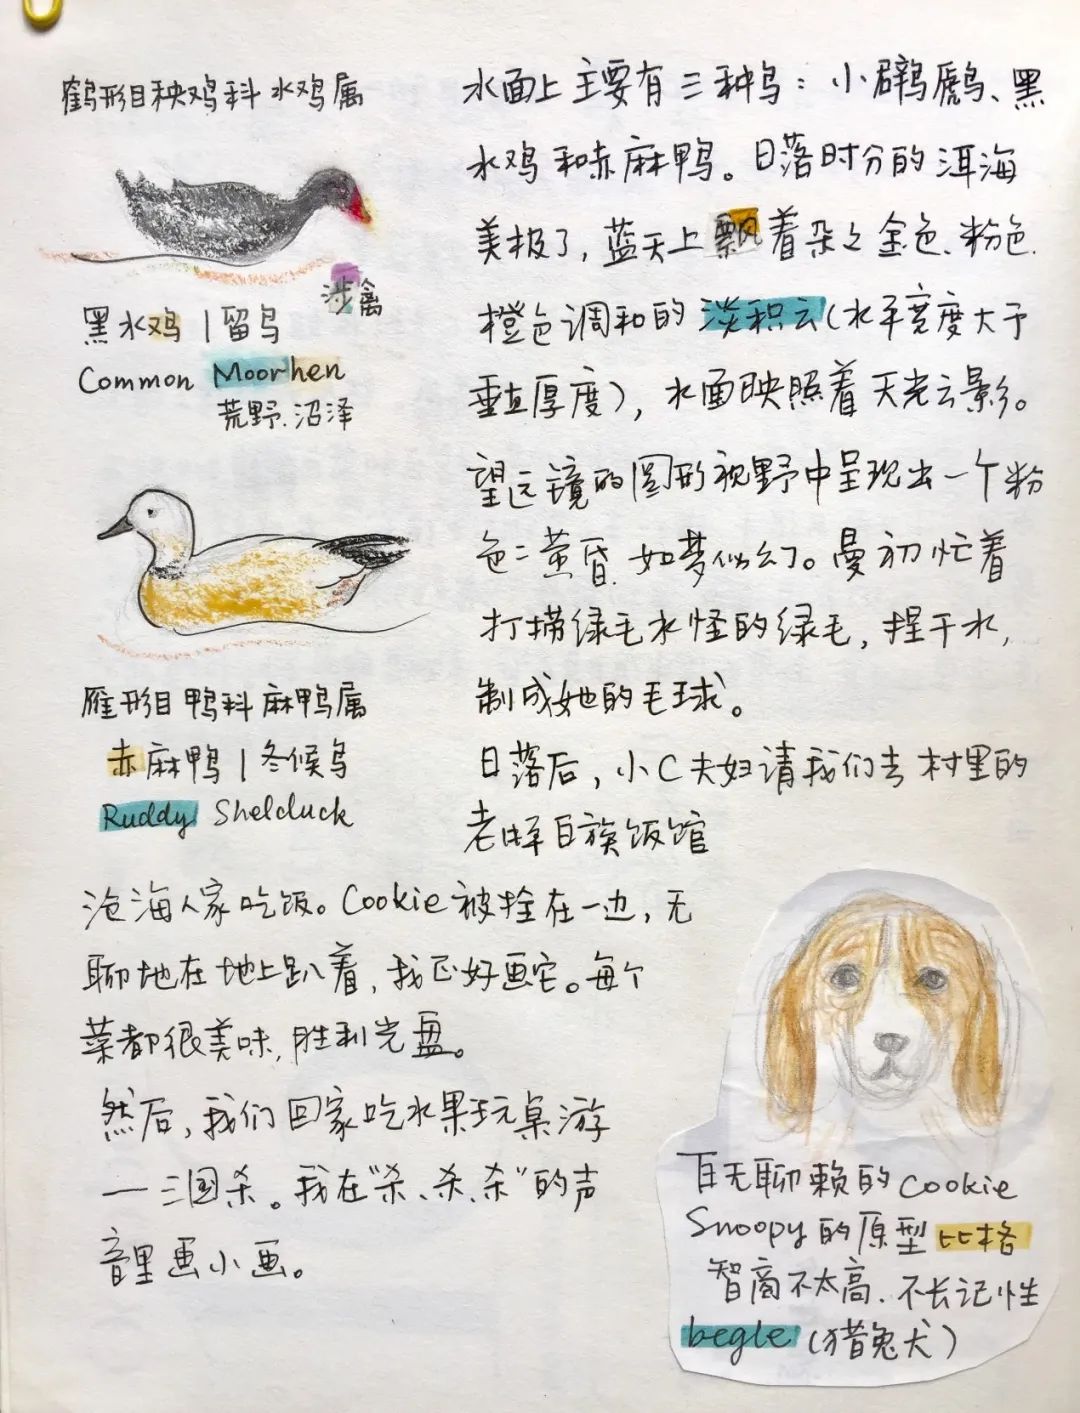 鹤形目秧鸡科 水鸡属
涉禽
黑水鸡 | 留鸟
Common Moorhen
荒野.沼泽
雁形目 鸭科 麻鸭属
赤麻鸭 | 冬候鸟
Ruddy Shelduck
水面上主要有三种鸟：小䴙䴘、黑
水鸡和赤麻鸭。日落时分的洱海
美极了，蓝天上飘着朵々金色、粉色.
橙色调和的淡积云(水平宽度大于
垂直厚度)，水面映照着天光云影。
望远镜的圆形视野中呈现出一个粉
色二黄昏.如梦似幻。曼初忙着
打捞绿毛水怪的绿毛，捏干水，
制成她的毛球。
日落后，小C夫妇请我们去村里的
老牌白族饭馆
沧海人家吃饭。Cookie被拴在一边，无
聊地在地上趴着，我正好画它。每个
菜都很美味，胜利光盘。
然后，我们回家吃水果玩桌游
—三国杀。我在“杀、杀、杀”的声
音里画小画。
百无聊赖的cookie
Snoopy的原型比格
智商不太高、不长记性
begle (猎兔犬)